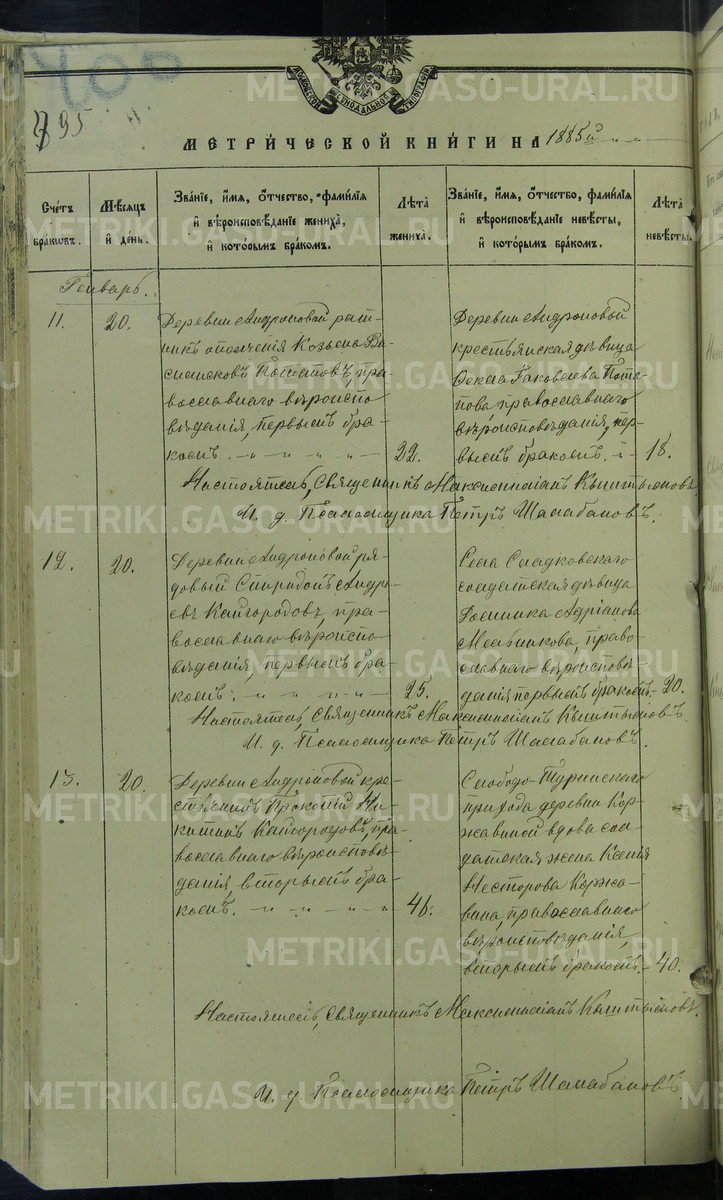 МОСКОВСКОЙ СѴНОДАЛЬНОЙ ТИПОГРАФІИ
400
495
МЕТРИ́ЧЕСКОЙ КНИ́ГИ НА 1885й
Сче́тъ бра́ковъ.
Мѣ́сяцъ и҆ де́нь.
Зва́нїе, и҆́мя, ѻ҆́тчество, фами́лїя и҆ вѣроисповѣ́данїе жениха̀, и҆ кото́рымъ бра́комъ.
Лѣ́та жениха̀.
Зва́нїе, и҆́мя, ѻ҆́тчество, фами́лїя и҆ вѣроисповѣ́данїе невѣ́сты, и҆ кото́рымъ бра́комъ.
Лѣ́та невѣ́сты.
Генварь.
11.
20.
Деревни Андроновой рат-
никъ ополченія Козьма Ва-
сильевъ Потаповъ, пра-
вославнаго вѣроиспо-
вѣданія, первымъ бра-
комъ.
22.
Деревни Андроновой
крестьянская дѣвица
Ѳекла Іаковлева Пота-
пова православнаго
вѣроисповѣданія, пер-
вымъ бракомъ.
18.
Настоятель, Священникъ Максимиліанъ Кыштымовъ
И. д. Псаломщика Петръ Шалабановъ.
12.
20.
Деревни Андроновой, ря-
довый Спиридонъ Андре-
евъ Кайгородовъ, пра-
вославнаго вѣроиспо-
вѣданія, первымъ бра-
комъ.
25.
Села Сладковскаго
солдатская дѣвица
Домника Адріанова
Мельникова, право-
славнаго вѣроисповѣ-
данія первымъ бракомъ
20.
Настоятель, Священникъ Максимиліанъ Кыштымовъ.
И. д. Псаломщика Петръ Шалабановъ.
13.
20.
Деревни Андроновой кре-
стьянинъ Прокопій Ни-
китинъ Кайгородовъ, пра-
вославнаго вѣроисповѣ-
данія, вторымъ бра-
комъ.
46.
Слободо-Туринскаго
прихода деревни Кор-
жавиной вдова сол-
датская жена Ксенія
Несторова Коржа-
вина, православнаго
вѣроисповѣданія,
вторымъ бракомъ.
40.
Настоятель, Священникъ Максимиліанъ Кыштымовъ.
И. д. Псаломщика Петръ Шалабановъ.
METRIKI.GASO-URAL.RU